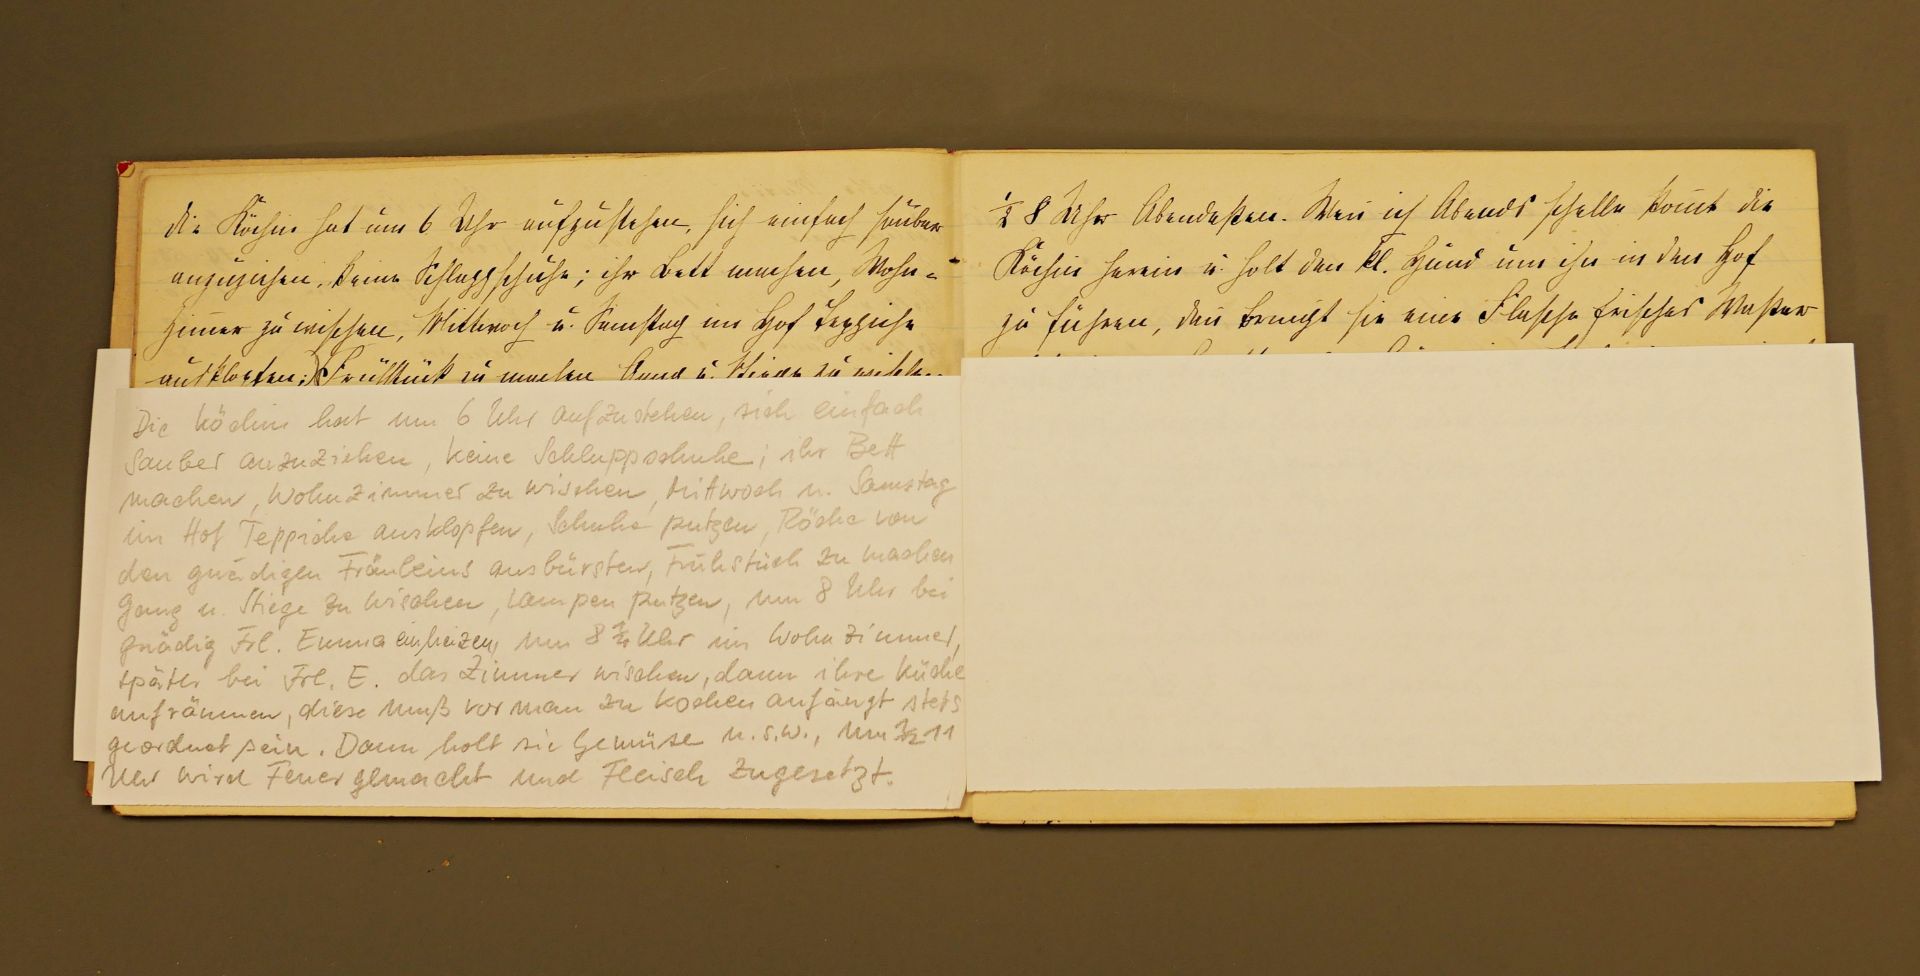 die Köchin hat um 6 Uhr aufzustehen, sich einfach sauber
anzuziehen, keine Schlappschuhe; ihr Bett machen, Wohn=
zim̅er zu wischen, Mittwoch u. Samstag im Hof Teppiche
ausklopfen; Frühstück zu machen Gang u. Stiege zu wischen
Die Köchin hat um 6 Uhr aufzustehen, sich einfach
sauber anzuziehen, keine Schluppschuhe; ihr Bett
machen, Wohnzimmer zu wischen, Mittwoch u. Samstag
im Hof Teppiche ausklopfen, Schuhe putzen, Röcke von
den gnädigen Fräuleins ausbürsten, Frühstück zu machen
Gang u. Stiege zu wischen, Lampen putzen, um 8 Uhr bei
gnädig Frl. Emma einheizen, um 8 Uhr im Wohnzimmer,
später bei Frl. E. das Zimmer wischen, dann ihre Küche
aufräumen, diese muß vor man zu kochen anfängt stets
geordnet sein. Dann holt sie Gemüse u.s.w., um 1/2 11
Uhr wird Feuer gemacht und Fleisch zugesetzt.
½ 8 Uhr Abendessen. Wen̅ ich Abends schelle kom̅t die
Köchin herein u. holt den kl. Hund um ihn in den Hof
zu führen, dan̅ bringt sie eine Flasche frisches Wasser